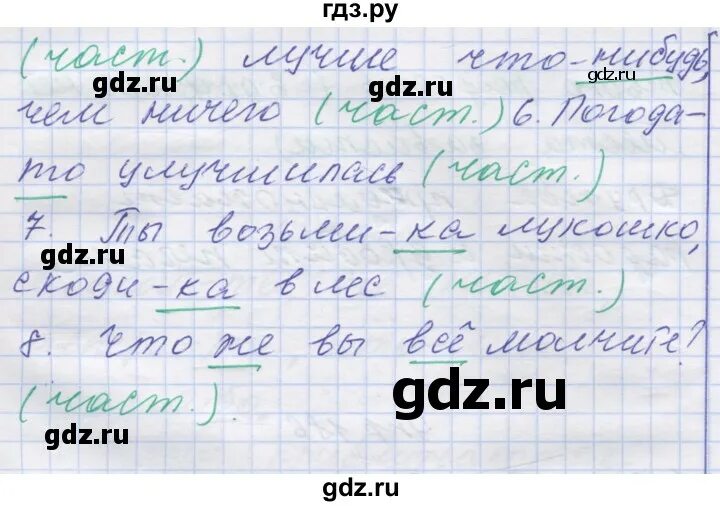 гдз.ру
(част.) лучше что-нибудь,
gdz.ru gdz.ru gdz.ru
чем ничего (част.) 6. Погода-
то улучшилась (част.)
7. Ты возьми-ка лукошко,
gdz.ru gdz.ru
сходи-ка в лес (част.)
8. Что же вы всё молчите?
gdz.ru
(част.)
gdz.ru
gdz.ru